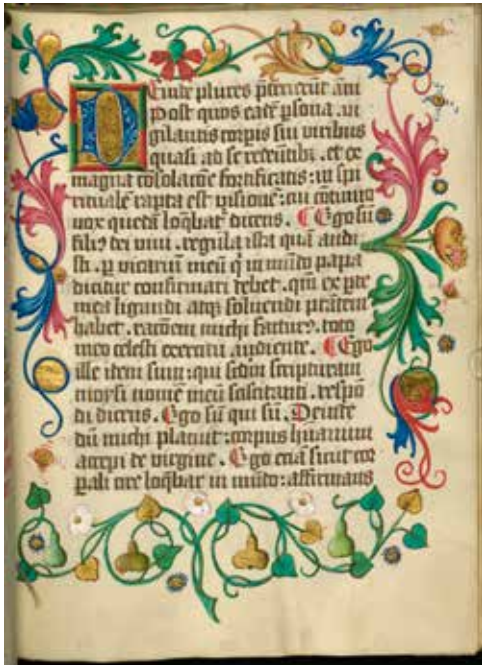 Deinde plures p̄terierūt āni
Post quos eadē ꝑsona. ui
gilantis corꝑis sui uiribus
quasi ad se
magna cōsolacōe fortificatis: in spi
rituale rapta est visionē: cui cōtinuo
vox quedā loq̄bat dicens. Ego sū
filiꝰ dei viui. regula ista quā audi
sti. ꝑ vicariū meū q̄ in mūdo papa
dicitur confirmari debet. qui ex ꝑte
mea ligandi atqꝫ soluendi ptātem
habet. racōem michi facturꝰ. toto
meo celesti exercitu audiente. Ego
ille idem sum: qui scdm scripturam
moysi nomē meū sciscitanti. respō
di dicens. Ego sū qui sū. Deinde
dū michi placuit: corpus humanum
accepi de virgine. Ego eciā sicut cor
ꝑali ore loq̄bar in mūdo: affirmans